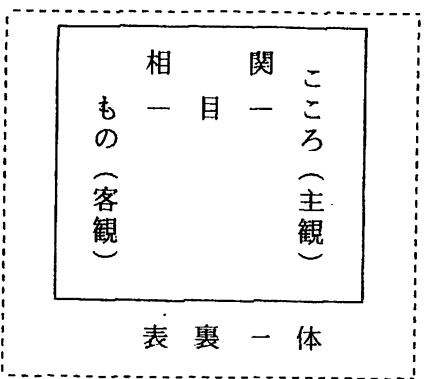 こころ（主観）
相 関
— 目 —
もの（客観）
表 裏 一 体